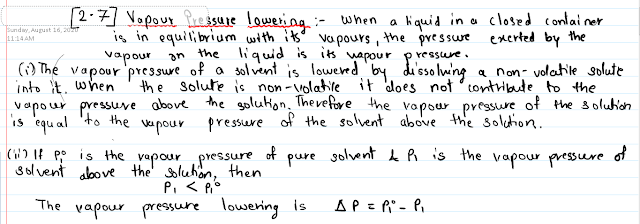 [2.7] Vapour Pressure lowering :- When a liquid in a closed container
Sunday, August 16, 2020
11:14 AM
is in equilibrium with its vapours, the pressure exerted by the
vapour on the liquid is its vapour pressure.
(i) The vapour pressure of a solvent is lowered by dissolving a non-volatile solute
into it. When the solute is non-volatile it does not contribute to the
vapour pressure above the solution. Therefore the vapour pressure of the solution
is equal to the vapour pressure of the solvent above the solution.
(ii) If P₁° is the vapour pressure of pure solvent & P₁ is the vapour pressure of
solvent above the solution, then
P₁ < P₁°
The vapour pressure lowering is ΔP = P₁° - P₁